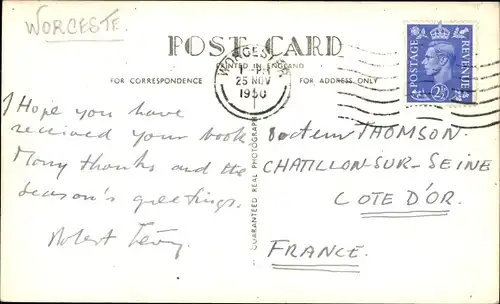 WORCESTE.
POST CARD
PRINTED IN ENGLAND
FOR CORRESPONDENCE
FOR ADDRESS ONLY
WORCESTER
1 - PM
25 NOV
1950
POSTAGE
REVENUE
2½
I Hope you have
received your book
Many thanks and the
season's greetings.
Robert
GUARANTEED REAL PHOTOGRAPH
Docteur THOMSON.
CHATILLON-SUR-SEINE
COTE D'OR.
FRANCE.